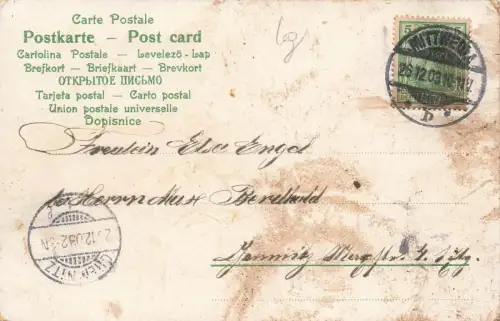 Carte Postale
Postkarte – Post card
Cartolina Postale – Levelező-Lap
Brefkort – Briefkaart – Brevkort
ОТКРЫТОЕ ПИСЬМО
Tarjeta postal – Carto postal
Union postale universelle
Dopisnice
5
MITTWEIDA
b
Fräulein Elsa Engel
Herrn Max Berthold
Chemnitz
CHEMNITZ